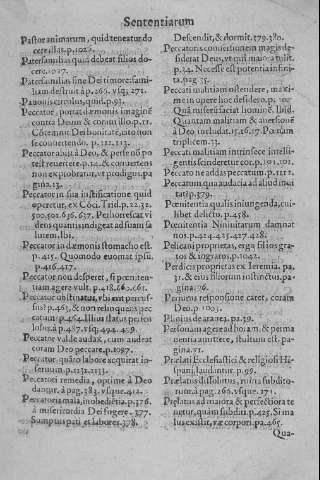 Sententiarum
Pastor animarum, quid teneatur do
cere illas.p.1020.
Paterfamilias quid debeat filios do-
cere.1027.
Paterfamilias sine Dei timore: fami-
liam destruit à p.266. vsq; 272.
Pauonis crocitus, quid.p.93.
Peccator, portat dæmonis imaginẽ
contra Deum & contra illo.p.11.
Côtemnit Dei bonitatẽ, cito non
se conuertendo, p.112.113.
Peccator abit à Deo, & per se nõ po
test reuertere.p.14. & conuertens
non exprobratur, vt prodigus.pa
gina.13.
Peccator in sua iustificatione quid
operetur, ex Cõci. Trid.p.22.32.
500.501.636.637. Perhorrescat vi
dens quanti indigeat ad suam sa
lutem. Ibi.
Peccator in dæmonis stomacho est.
p.415. Quomodo euomat ipsũ.
p.416.417.
Peccator non desperet, si pœniten-
tiam agere vult.p.418.660.661.
Peccator obstinatus,
sus? p.463. & non relinquens pec
catum.p.464. Illius status pericu
losus.à p.487.vsq; 494. 459.
Peccator valde audax, cum audeat
coram Deo peccare.p.1097.
Peccator, quãto labore acquirat in-
fernum. p.1132.1133.
Peccatori remedia, optime à Deo
dantur. à pag.383. vsque.412.
Peccatoris mala, inobediẽtia.p.376.
à misericordia Dei fugere. 377.
Sumptus pati et labores.378.
Descendit, & dormit.379.380.
Peccatoris conuersionem magis de-
siderat Deus, vt mũ maiora tulit.
p.34. Necesse est potentia infini-
ta.pag.35.
Peccati malitiam ostendere, maxi-
me in opere hoc desidero.p.
Quã miserũ faciat hominẽ. Ibid.
Quantam malitiam & auersionẽ
à Deo includat.15.16.17. Pœnam
triplicem.31.
Peccati malitiam intrinsece intelli-
gentis scinderetur cor.p.101.102.
Peccato ne addas peccatum.p.1121.
Peccatum qua audacia ad aliud inui
tat? p.379.
Pœnitentia qualis iniungenda, cui-
libet delicto. p.458.
Pœnitentia Niniuitarum damnat
nos.p.424.425.427.428.
Pelicani proprietas, erga filios gra-
tos & ingratos.p.1042.
Perdicis proprietas ex Ieremia. pa.
31. & eius filiorum instinctus.pa-
gina.76.
Peruicus responsione caret, coram
Deo.p.1003.
Plinius de aranea. pa.39.
Personam agere ad horam, & perma
nentia auuttere, stultum est. pa-
gina.71.
Prælati Ecclesiastici & religiosi Hi-
spani, laudantur. p.99.
Prælatus dissolutus, ruina subdito-
rum à pag.266. vsque.271.
Prælatus ad maiora & perfectiora te
netur, quàm subditi.p.425. Si ma
lus existit, rãæ corpori.pa.465.
Qua-